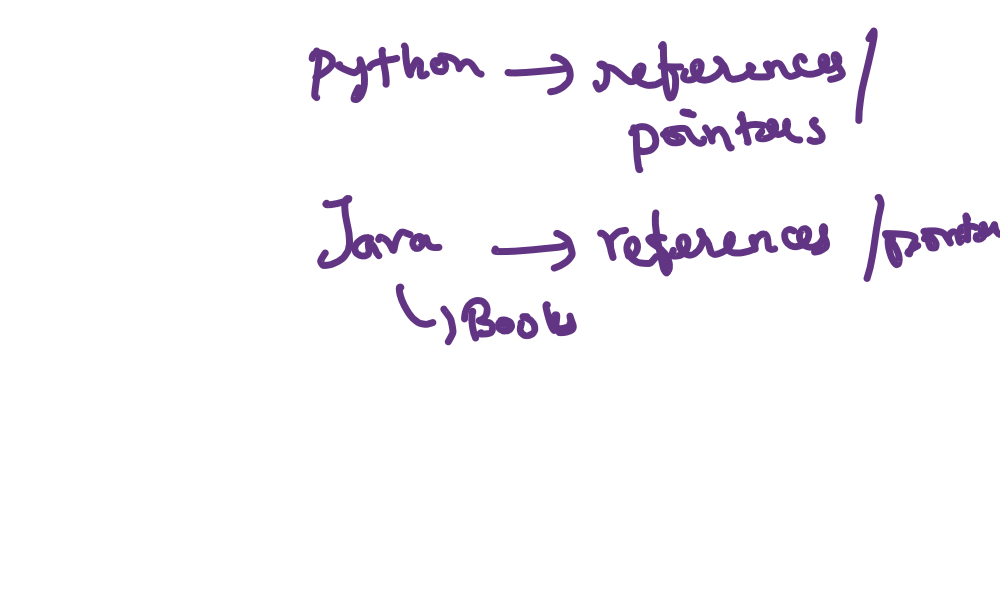 Python → references /
pointers
Java → references / pointe
↳ Book